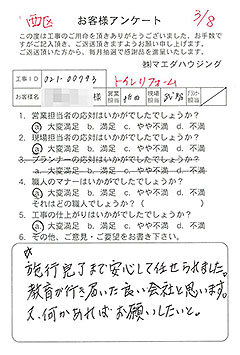 西区
お客様アンケート
3/8
この度は工事のご用命を頂きありがとうございます。お手数で
すがご記入頂き、ご返送頂きますようお願い申し上げます。
ご返送頂いた方から、毎月抽選で感謝品を進呈いたします。
㈱マエダハウジング
工事ID 021-00793 トイレリフォーム
お客様名 様 営業担当 現場担当 プランナー担当
1. 営業担当者の応対はいかがでしたでしょうか?
a.大変満足 b.満足 c.やや不満 d.不満
2. 現場担当者の応対はいかがでしたでしょうか?
a.大変満足 b.満足 c.やや不満 d.不満
3. プランナーの応対はいかがでしたでしょうか?
a.大変満足 b.満足 c.やや不満 d.不満
4. 職人のマナーはいかがでしたでしょうか?
a.大変満足 b.満足 c.やや不満 d.不満
それはどの職人でしょうか?( )
5. 工事の仕上がりはいかがでしたでしょうか?
a.大変満足 b.満足 c.やや不満 d.不満
6. その他、ご意見・ご要望をお書き下さい。
施行完了まで安心して任せられました。
教育が行き届いた良い会社と思います。
又、何かあればお願いしたいと。